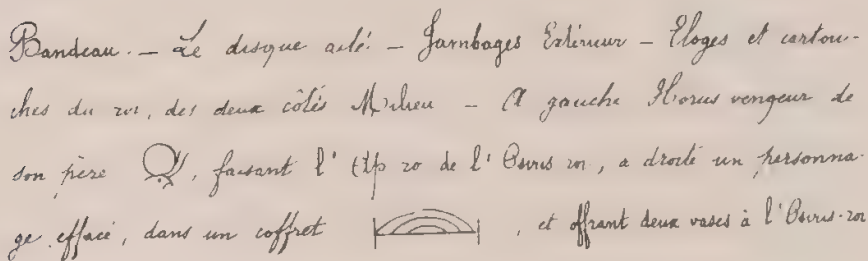 Bandeau. — Le disque ailé. — Jambages Extérieur — Eloges et cartou-
ches du roi, des deux côtés Milieu — A gauche Horus vengeur de
son père , faisant l' Ap ro de l' Osiris roi, a droite un personna-
ge effacé, dans un coffret , et offrant deux vases à l' Osiris-roi